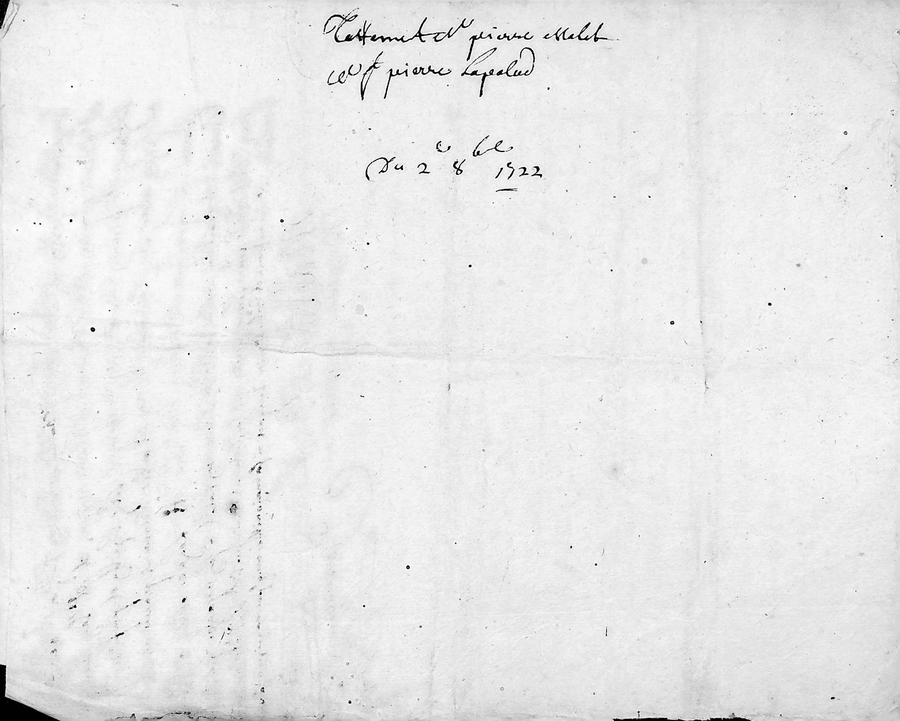 Testament de pierre Malet
et pierre Lapalud
Du 2e 8bre 1722